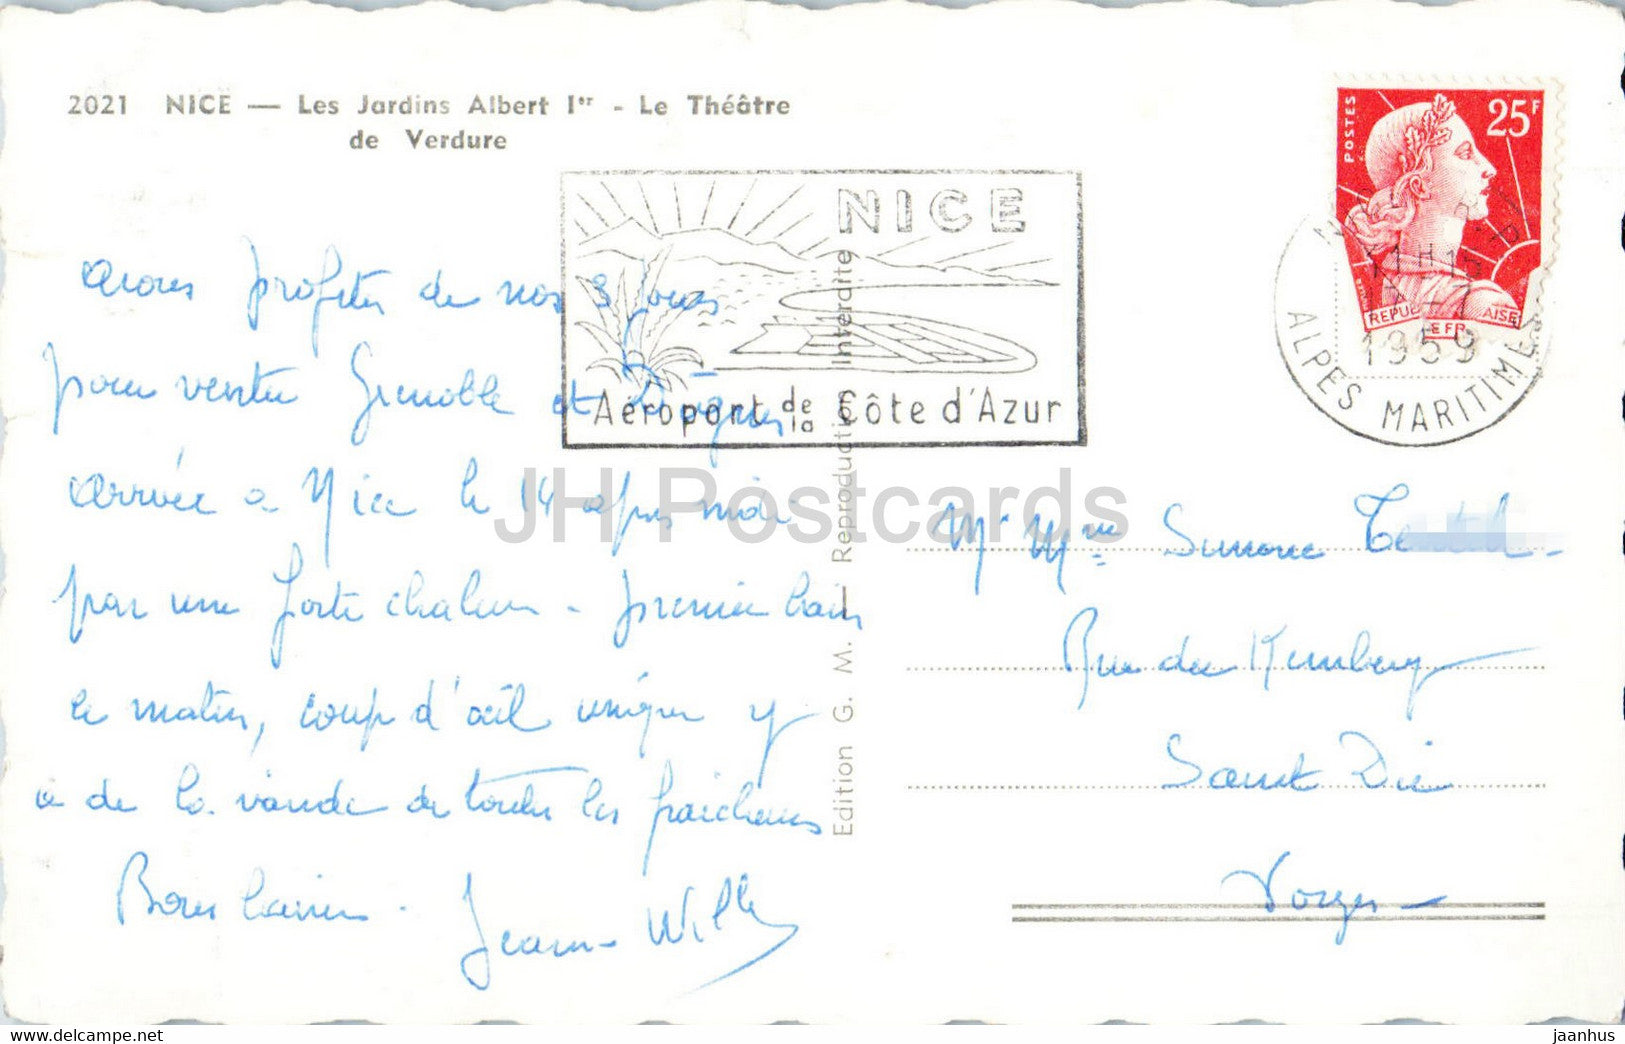 2021 NICE — Les Jardins Albert Ier - Le Théâtre
de Verdure
POSTES 25F
REPUBLIQUE FRANÇAISE
NICE
Aéroport de la Côte d'Azur
1959
ALPES MARITIMES
avons profiter de nos 3 jours
pour venter Grenoble et Dignes
arrivée a Nice le 14 apres midi
par une forte chaleur - premier bain
ce matin, coup d'œil unique y
a de la viande de toutes les fraicheurs
Bons baisers.
Jean - Willy
Edition G. M. — Reproduction interdite
Mr Mme Simone
Rue du Kemberg
Saint Dié
Vosges
JH Postcards
delcampe.net
jaanhus